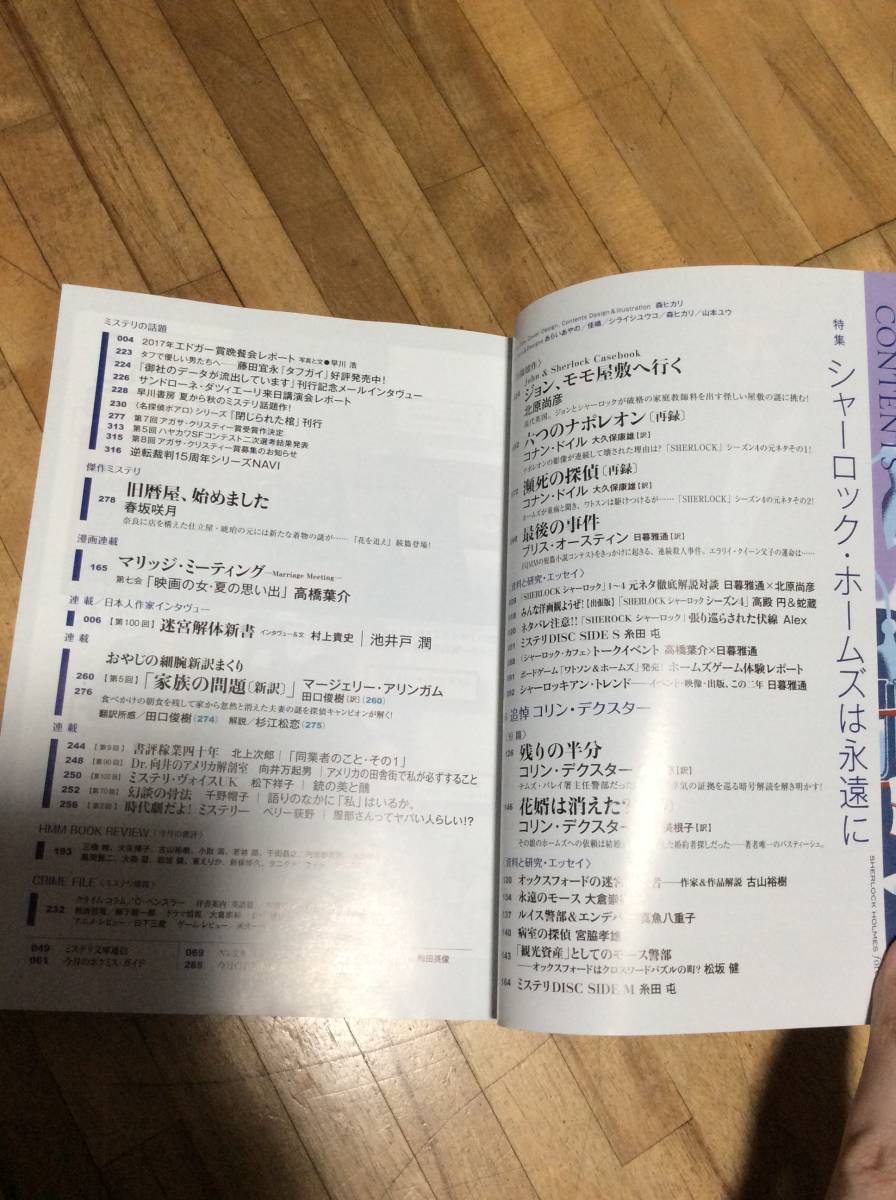 ミステリの話題
004 2017年エドガー賞晩餐会レポート 写真と文●早川 浩
223 タフで優しい男たちへ——藤田宜永『タフガイ』好評発売中!
224 『御社のデータが流出しています』刊行記念メールインタヴュー
226 サンドローネ・ダツィエーリ来日講演会レポート
228 早川書房 夏から秋のミステリ話題作!
230 〈名探偵ポアロ〉シリーズ『閉じられた棺』刊行
277 第7回アガサ・クリスティー賞受賞作決定
313 第5回ハヤカワSFコンテスト二次選考結果発表
315 第8回アガサ・クリスティー賞募集のお知らせ
316 逆転裁判15周年シリーズNAVI
傑作ミステリ
278 旧暦屋、始めました
春坂咲月
奈良に店を構えた仕立屋・琥珀の元には新たな着物の謎が……『花を追え』続篇登場!
漫画連載
165 マリッジ・ミーティング—Marriage Meeting—
第七会「映画の女・夏の思い出」高橋葉介
連載/日本人作家インタヴュー
006 【第100回】迷宮解体新書 インタヴュー&文 村上貴史|池井戸 潤
連載
おやじの細腕新訳まくり
260 【第5回】「家族の問題[新訳]」マージェリー・アリンガム
276 田口俊樹[訳](260)
食べかけの朝食を残して家から忽然と消えた夫妻の謎を探偵キャンピオンが解く!
翻訳所感/田口俊樹(274) 解説/杉江松恋(275)
連載
244 【第9回】書評稼業四十年 北上次郎|「同業者のこと・その1」
248 【第90回】Dr.向井のアメリカ解剖室 向井万起男|アメリカの田舎街で私が必ずすること
250 【第102回】ミステリ・ヴォイスUK 松下祥子|銃の美と醜
252 【第70回】幻談の骨法 千野帽子|語りのなかに「私」はいるか。
256 【第2回】時代劇だよ!ミステリー ペリー荻野|服部さんってヤバい人らしい!?
HMM BOOK REVIEW〈今月の書評〉
193
CRIME FILE〈ミステリ情報〉
232 クライム・コラム/O・ペンズラー 洋書案内
アニメ・レビュー/日下三蔵 ゲーム・レビュー
049 ミステリ文庫通信
061 今月のポケミス・ガイド
069
265
CONTENTS
特集 シャーロック・ホームズは永遠に
SHERLOCK HOLMES
Cover Design, Contents Design & Illustration 森ヒカリ
あらいあやの/佳嶋/シライシユウコ/森ヒカリ/山本ユウ
John & Sherlock Casebook
ジョン、モモ屋敷へ行く
北原尚彦
現代英国。ジョンとシャーロックが破格の家庭教師料を出す怪しい屋敷の謎に挑む!
六つのナポレオン[再録]
コナン・ドイル 大久保康雄[訳]
ナポレオンの彫像が連続して壊された理由は?「SHERLOCK」シーズン4の元ネタその1!
瀕死の探偵[再録]
コナン・ドイル 大久保康雄[訳]
ホームズが重病と聞き、ワトスンは駆けつけるが……「SHERLOCK」シーズン4の元ネタその2!
最後の事件
ブリス・オースティン 日暮雅通[訳]
EQMMの短篇小説コンテストをきっかけに起きる、連続殺人事件。エラリイ・クイーン父子の運命は……
資料と研究・エッセイ〉
「SHERLOCK シャーロック」1〜4 元ネタ徹底解説対談 日暮雅通×北原尚彦
みんな洋画観ようぜ![出張版]「SHERLOCK シャーロック シーズン4」高殿 円&蛇蔵
ネタバレ注意!!「SHEROCK シャーロック」張り巡らされた伏線 Alex
ミステリDISC SIDE S 糸田 屯
〈シャーロック・カフェ〉トークイベント 高橋葉介×日暮雅通
ボードゲーム「ワトソン&ホームズ」発売! ホームズゲーム体験レポート
シャーロッキアン・トレンド——イベント・映像・出版、この二年 日暮雅通
追悼 コリン・デクスター
残りの半分
コリン・デクスター
花婿は消えた?
コリン・デクスター
〈資料と研究・エッセイ〉
130 オックスフォードの迷宮 者——作家&作品解説 古山裕樹
134 永遠のモース 大倉崇裕
137 ルイス警部&エンデバー 真魚八重子
140 病室の探偵 宮脇孝雄
143 「観光資産」としてのモース警部
——オックスフォードはクロスワードパズルの町? 松坂 健
164 ミステリDISC SIDE M 糸田 屯